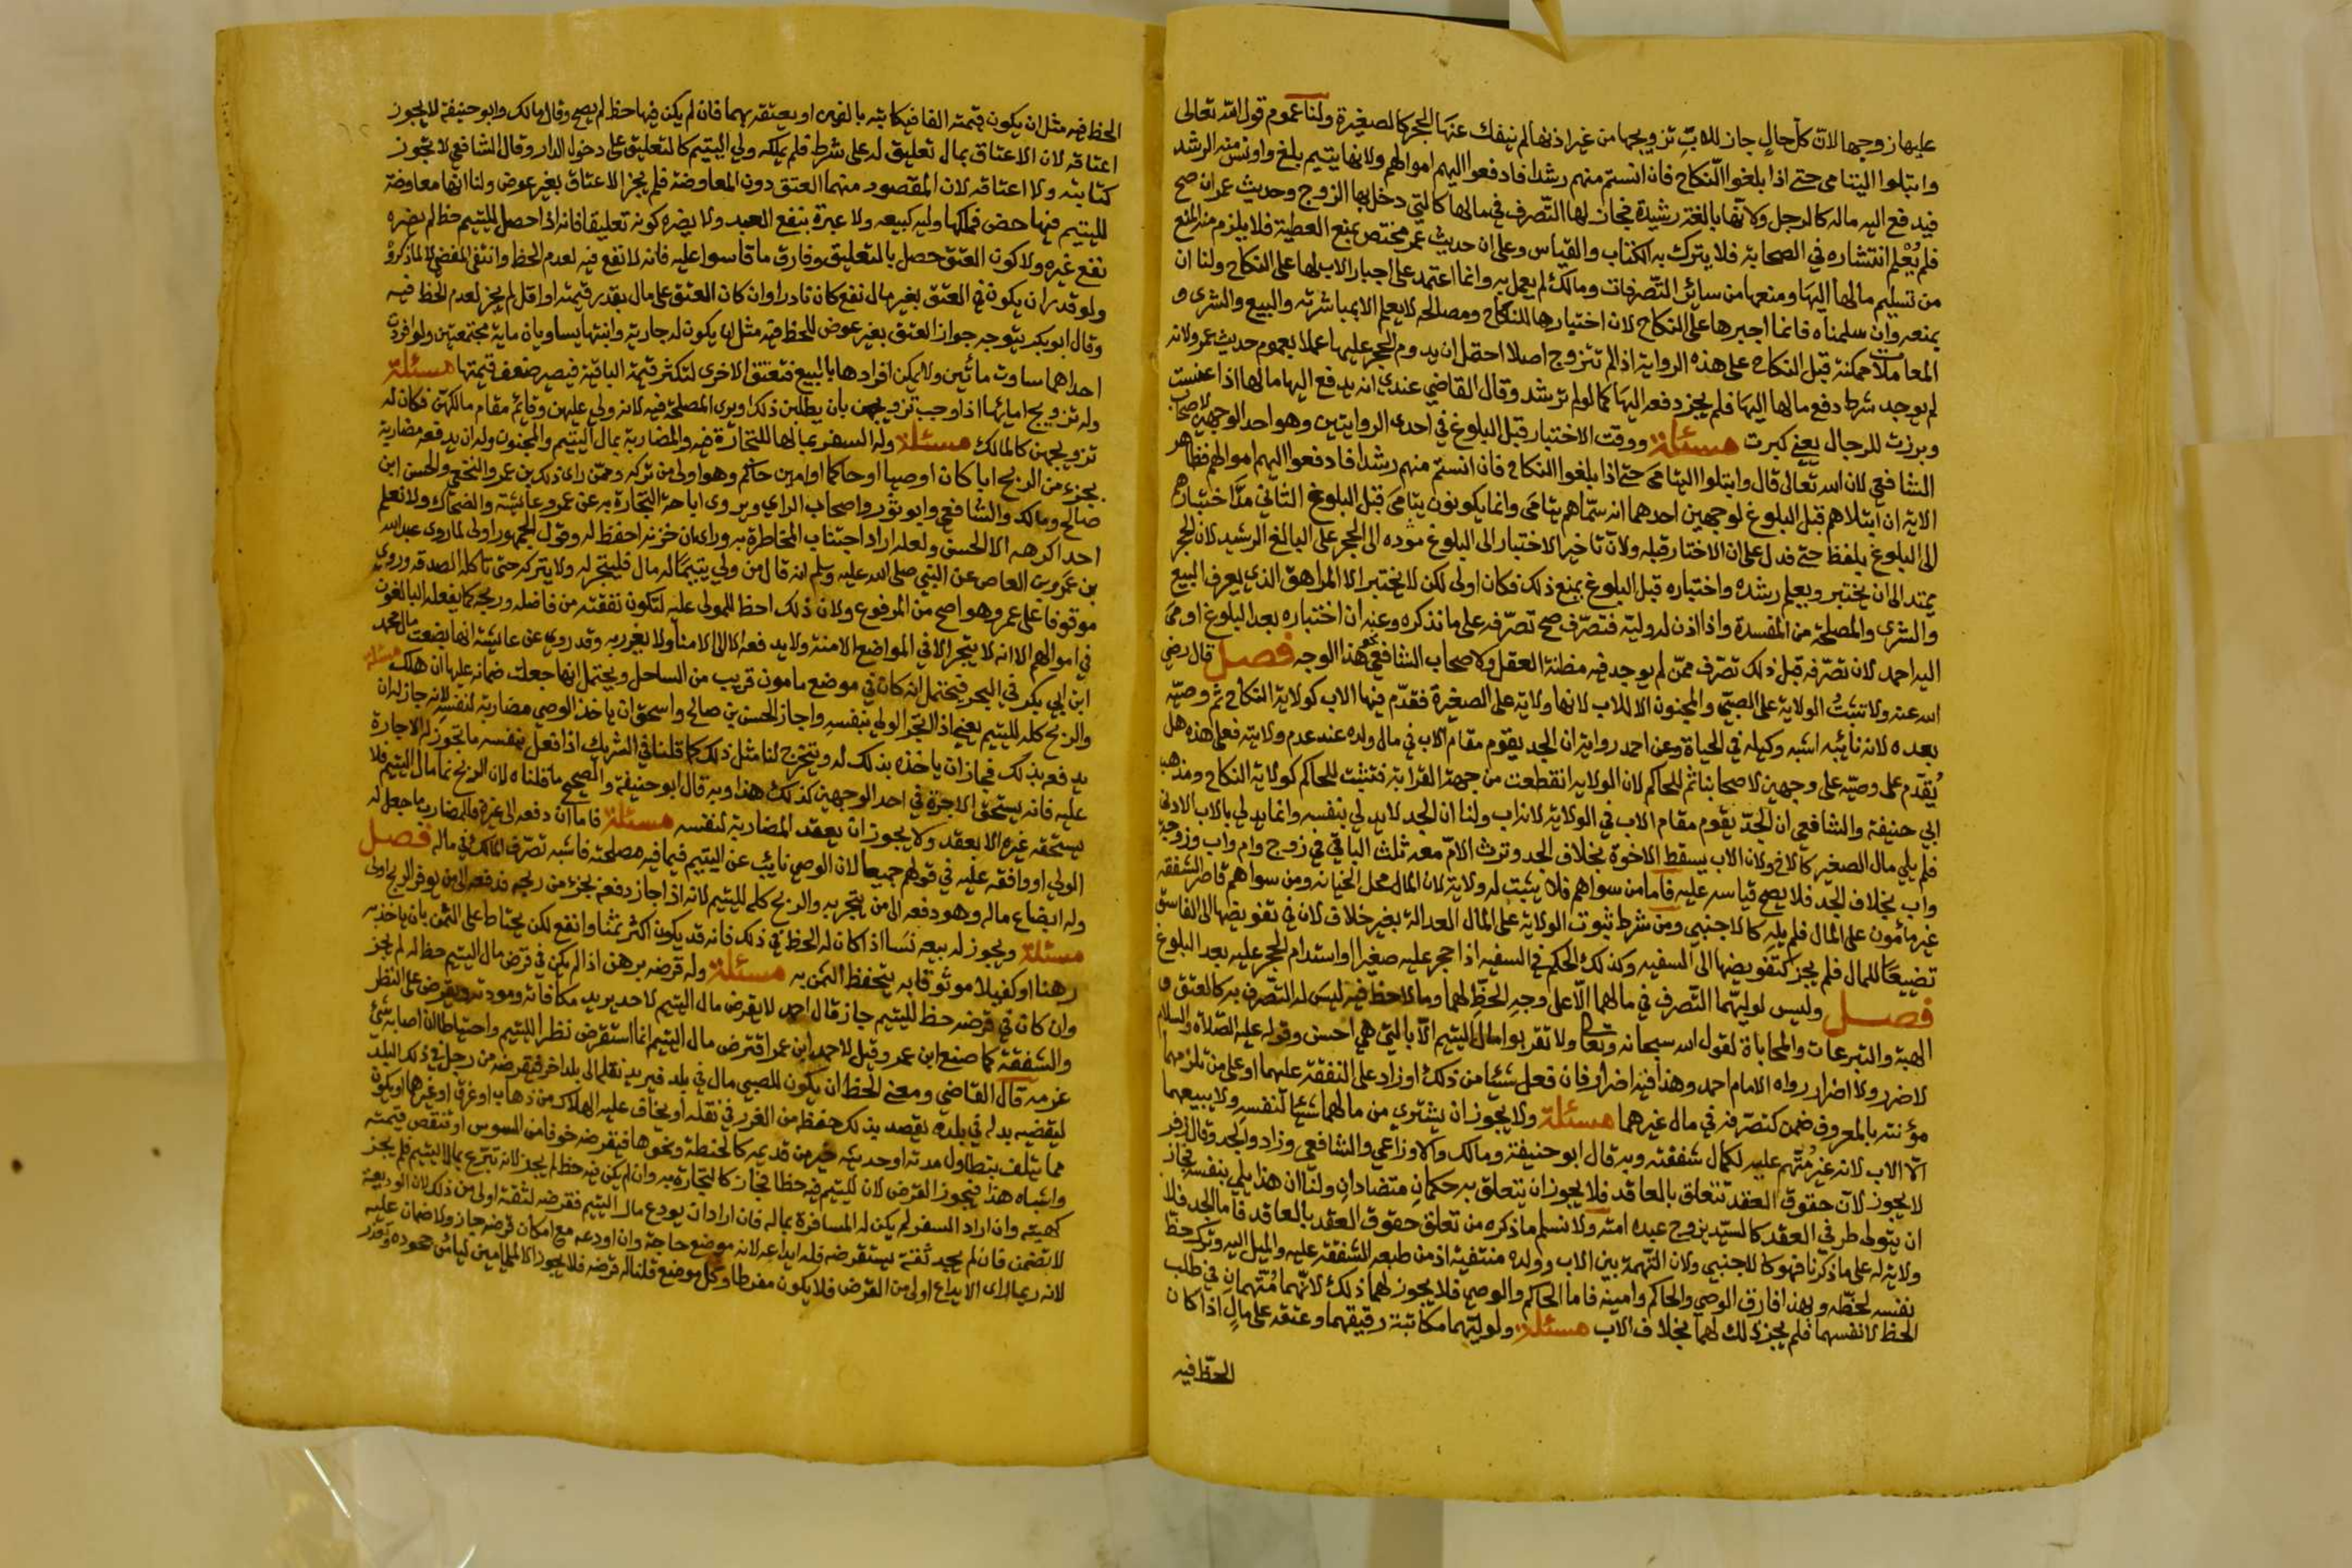 عليها زوجها لان كل حال جاز للاب تزويجها من غير اذنها لم ينفك عنها الحجر كالصغيرة ولنا عموم قول الله تعالى
وابتلوا اليتامى حتى اذا بلغوا النكاح فان انستم منهم رشدا فادفعوا اليهم اموالهم ولانها يتيم بلغ واونس منه الرشد
فيدفع اليه ماله كالرجل ولانها بالغة رشيدة فجاز لها التصرف في مالها كالتي دخل بها الزوج وحديث عمر ان صح
فلم يعلم انتشاره في الصحابة فلا يترك به الكتاب والقياس وعلى ان حديث عمر مختص بمنع العطية فلا يلزم منه المنع
من تسليم مالها اليها ومنعها من سائر التصرفات ومالك لم يعمل به وانما اعتمد على اجبار الاب لها على النكاح ولنا ان
يمنعه وان سلمناه فانما اجبرها على النكاح لان اختبارها للنكاح ومصالحه لا يعلم الا بمباشرته والبيع والشرى و
المعاملات ممكنة قبل النكاح على هذه الرواية اذا لم تتزوج اصلا احتمل ان يدوم الحجر عليها عملا بعموم حديث عمر ولانه
لم يوجد شرط دفع مالها اليها فلم يجز دفعه اليها كما لو لم ترشد وقال القاضي عندي انه يدفع اليها مالها اذا عنست
وبرزت للرجال يعني كبرت مسئلة ووقت الاختبار قبل البلوغ في احدى الروايتين وهو احد الوجهين لاصحاب
الشافعي لان الله تعالى قال وابتلوا اليتامى حتى اذا بلغوا النكاح فان انستم منهم رشدا فادفعوا اليهم اموالهم فظاهر
الاية ان ابتلاهم قبل البلوغ لوجهين احدهما انه سماهم يتامى وانما يكونون يتامى قبل البلوغ الثاني مد اختبارهم
الى البلوغ بلفظ حتى فدل على ان الاختبار قبله ولان تاخير الاختبار الى البلوغ مؤده الى الحجر على البالغ الرشيد لان الحجر
يمتد الى ان يختبر ويعلم رشده واختباره قبل البلوغ يمنع ذلك فكان اولى لكن لا يختبر الا المراهق الذي يعرف البيع
والشرى والمصلحة من المفسدة واذا اذن له وليه فتصرف صح تصرفه على ما نذكره وعنه ان اختباره بعد البلوغ اومى
اليه احمد لان تصرفه قبل ذلك تصرف ممن لم يوجد فيه مظنة العقل ولاصحاب الشافعي نحو هذا الوجه فصل قال رضي
الله عنه ولا تثبت الولاية على الصبي والمجنون الا للاب لانها ولاية على الصغيرة فقدم فيها الاب كولاية النكاح ثم وصيه
بعده لانه نائبه اشبه وكيله في الحياة وعن احمد رواية ان الجد يقوم مقام الاب في مال ولده عند عدم ولايته فعلى هذه هل
يقدم على وصيه على وجهين لاصحابنا ثم للحاكم لان الولايه انقطعت من جهة القرابة فتثبت للحاكم كولاية النكاح ومذهب
ابي حنيفة والشافعي ان الجد يقوم مقام الاب في الولاية لانه اب ولنا ان الجد لا يدلي بنفسه وانما يدلي بالاب الادنى
فلم يلي مال الصغير كالاخ ولان الاب يسقط الاخوة بخلاف الجد وترث الام معه ثلث الباقي في زوج وام واب وزوجة
واب بخلاف الجد فلا يصح قياسه عليه فاما من سواهم فلا يثبت له ولاية لان المال محل الخيانه ومن سواهم قاصر الشفقة
غير مأمون على المال فلم يله كالاجنبي ومن شرط ثبوت الولاية على المال العدالة بغير خلاف لان في تفويضها الى الفاسق
تضييعا للمال فلم يجز كتفويضها الى السفيه وكذلك الحكم في السفيه اذا حجر عليه صغيرا واستدام الحجر عليه بعد البلوغ
فصل وليس لوليهما التصرف في مالهما الا على وجه الحظ لهما وما لا حظ فيه ليس له التصرف به كالعتق و
الهبة والتبرعات والمحاباة لقول الله سبحانه وتعالى ولا تقربوا مال اليتيم الا بالتي هي احسن وقوله عليه الصلاة والسلام
لا ضرر ولا اضرار رواه الامام احمد وهذا فيه اضرار فان فعل شيئا من ذلك او زاد على النفقة عليهما او على من تلزمهما
مؤنته بالمعروف ضمن كتصرفه في مال غيرهما مسئلة ولا يجوز ان يشتري من مالهما شيئا لنفسه ولا يبيعهما
الا الاب لانه غير متهم عليه لكمال شفقته وبه قال ابو حنيفة ومالك والاوزاعي والشافعي وزادوا الجد وقال زفر
لا يجوز لان حقوق العقد تتعلق بالعاقد فلا يجوز ان يتعلق به حكمان متضادان ولنا ان هذا يلي بنفسه فجاز
ان يتولى طرفي العقد كالسيد يزوج عبده امته ولا نسلم ما ذكره من تعلق حقوق العقد بالعاقد فاما الجد فلا
ولاية له على ما ذكرنا فهو كالاجنبي ولان التهمة بين الاب وولده منتفية اذ من طبعه الشفقة عليه والميل اليه وترك حظ
نفسه لحظه وبهذا فارق الوصي والحاكم وامينه فاما الحاكم والوصي فلا يجوز لهما ذلك لانهما متهمان في طلب
الحظ لانفسهما فلم يجز ذلك لهما بخلاف الاب مسئلة ولوليهما مكاتبة رقيقهما وعتقه على مال اذا كان
الحظ فيه
الحظ فيه مثل ان يكون قيمته الفا فيكاتبه بالفين او يعتقه بهما فان لم يكن فيها حظ لم يصح وقال مالك وابو حنيفة لا يجوز
اعتاقه لان الاعتاق بمال تعليق له على شرط فلم يملكه ولي اليتيم كالتعليق على دخول الدار وقال الشافعي لا تجوز
كتابته ولا اعتاقه لان المقصود منهما العتق دون المعاوضة فلم يجز الاعتاق بغير عوض ولنا انها معاوضة
لليتيم فيها حض فملكها وليه كبيعه ولا عبرة بنفع العبد ولا يضره كونه تعليقا فانه اذا حصل لليتيم حظ لم يضره
نفع غيره ولا كون العتق حصل بالتعليق وفارق ما قاسوا عليه فانه لا نفع فيه لعدم الحظ وانتفى المقتضي لا لما ذكروه
ولو قدر ان يكون في العتق بغير مال نفع كان نادرا وان كان العتق على مال بقدر قيمته او اقل لم يجز لعدم الحظ فيه
وقال ابو بكر يتوجه جواز العتق بغير عوض للحظ فيه مثل ان يكون له جارية وابنتها يساويان ماية مجتمعتين ولو افردت
احداهما ساوت مأتين ولا يمكن افرادها بالبيع فتعتق الاخرى لتكثر قيمة الباقية فيصير ضعف قيمتها مسئلة
وله تزويج امائهما اذا وجب تزويجهن بان يطلبن ذلك او يرى المصلحة فيه لانه ولي عليهن وقائم مقام مالكهن فكان له
تزويجهن كالمالك مسئلة وله السفر بمالهما للتجارة فيه والمضاربة بمال اليتيم والمجنون وله ان يدفعه مضاربة
بجزء من الربح ابا كان او وصيا او حاكما او امين حاكم وهو اولى من تركه وممن راى ذلك بن عمر والنخعي والحسن ابن
صالح ومالك والشافعي وابو ثور واصحاب الراي ويروى اباحة التجارة به عن عمر وعائشة والضحاك ولا نعلم
احدا كرهه الا الحسن ولعله اراد اجتناب المخاطرة به وراى ان خزنه احفظ له وقول الجمهور اولى لما روى عبد الله
بن عمرو بن العاص عن النبي صلى الله عليه وسلم انه قال من ولي يتيما له مال فليتجر له ولا يتركه حتى تاكله الصدقه وروي
موقوفا على عمر وهو اصح من المرفوع ولان ذلك احظ للمولى عليه لتكون نفقته من فاضله وربحه كما يفعله البالغون
في اموالهم الا انه لا يتجر الا في المواضع الامنة ولا يدفعه الا الى الامناء ولا يغرر به وقد روي عن عايشة انها ابضعت مال محمد
ابن ابي بكر في البحر فيحتمل انه كان في موضع مامون قريب من الساحل ويحتمل انها جعلت ضمانه عليها ان هلك مسئلة
والربح كله لليتيم يعني اذا اتجر الولي بنفسه واجاز الحسن بن صالح واسحق ان ياخذ الوصي مضاربة لنفسه لانه جاز له ان
يدفعه بذلك فجاز ان ياخذه بذلك له ويتخرج لنا مثل ذلك كما قلنا في الشريك اذا فعل بنفسه ما تجوز له الاجارة
عليه فانه يستحق الاجرة في احد الوجهين كذلك هذا وبه قال ابو حنيفة والصحيح ما قلناه لان الربح نما مال اليتيم فلا
يستحقه غيره الا بعقد ولا يجوز ان يعقد المضاربة لنفسه مسئلة فاما ان دفعه الى غيره فللمضارب ما جعل له
الولي او وافقه عليه في قولهم جميعا لان الوصي نائب عن اليتيم فيما فيه مصلحته فاشبه تصرف المالك في ماله فصل
وله ابضاع ماله وهو دفعه الى من يتجر به والربح كله لليتيم لانه اذا جاز دفعه بجزء من ربحه فدفعه الى من يوفر الربح اولى
مسئلة ويجوز له بيعه نسا اذا كان له الحظ في ذلك فانه قد يكون اكثر ثمنا وانفع لكن يحتاط على الثمن بان ياخذ به
رهنا او كفيلا موثوقا به يتحفظ الثمن به مسئلة وله قرضه برهن اذا لم يكن في قرض مال اليتيم حظ له لم يجز
وان كان في قرضه حظ لليتيم جاز قال احمد لا يقرض مال اليتيم لاحد يريد مكافاته ومودته ويقرض على النظر
والشفقة كما صنع ابن عمر وقيل لاحمد ابن عمر اقترض مال اليتيم انما استقرض نظرا لليتيم واحتياطا ان اصابه شئ
غرمه قال القاضي ومعنى الحظ ان يكون للصبي مال في بلد فيريد نقله الى بلد اخر فيقرضه من رجل في ذلك البلد
ليقضيه بدله في بلده يقصد بذلك حفظه من الغرر في نقله او يخاف عليه الهلاك من ذهاب او غرق او غيرها او يكون
مما يتلف بتطاول مدته او حديثه خير من قديمه كالحنطة ونحوها فيقرضه خوفا من السوس او تنقص قيمته
واشباه هذا فيجوز القرض لان لليتيم فيه حظا فجاز كالتجارة به وان لم يكن فيه حظ لم يجز لانه تبرع بمال اليتيم فلم يجز
كهبته وان اراد السفر لم يكن له المسافرة بماله فان اراد ان يودع مال اليتيم فقرضه لثقة اولى من ذلك لان الوديعة
لا تضمن فان لم يجد ثقة يستقرضه فله ايداعه لانه موضع حاجة وان اودعه مع امكان قرضه جاز ولا ضمان عليه
لانه ربما راى الايداع اولى من القرض فلا يكون مفرطا وكل موضع قلنا له قرضه فلا يجوز الا لملي امين ليأمن جحوده وتعذر